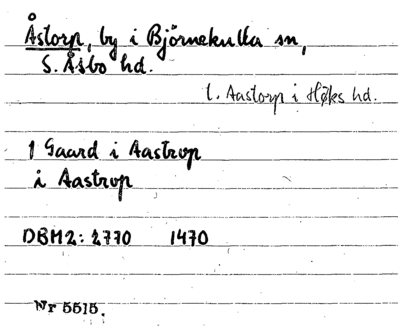 Åstorp, by i Björnekulla sn,
S. Åsbo hd.
l. Aastorp i Høks hd.
1 Gaard i Aastrop
i Aastrop
DBM2: 2770 1470
Nr 5515.